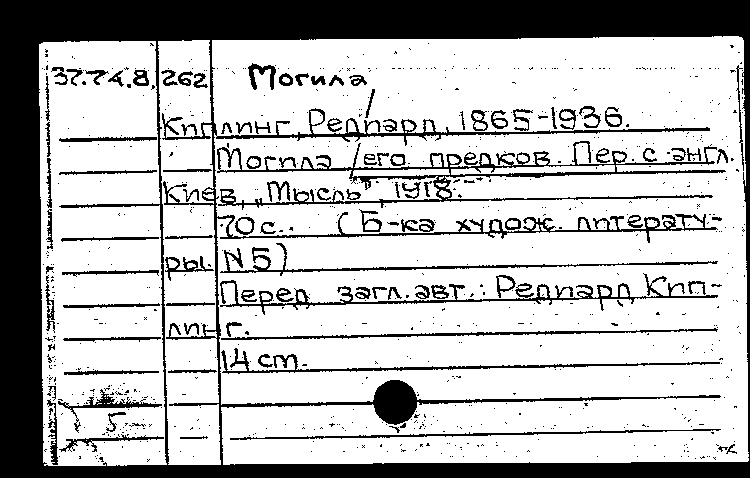 37.74.8.262 Могила
Киплинг, Редиард, 1865-1936.
Могила его предков. Пер. с англ.
Киев, „Мысль", 1918.
70 с. (Б-ка худож. литерату-
ры. N5)
Перед загл. авт.: Редиард Кип-
линг.
14 cm.
5